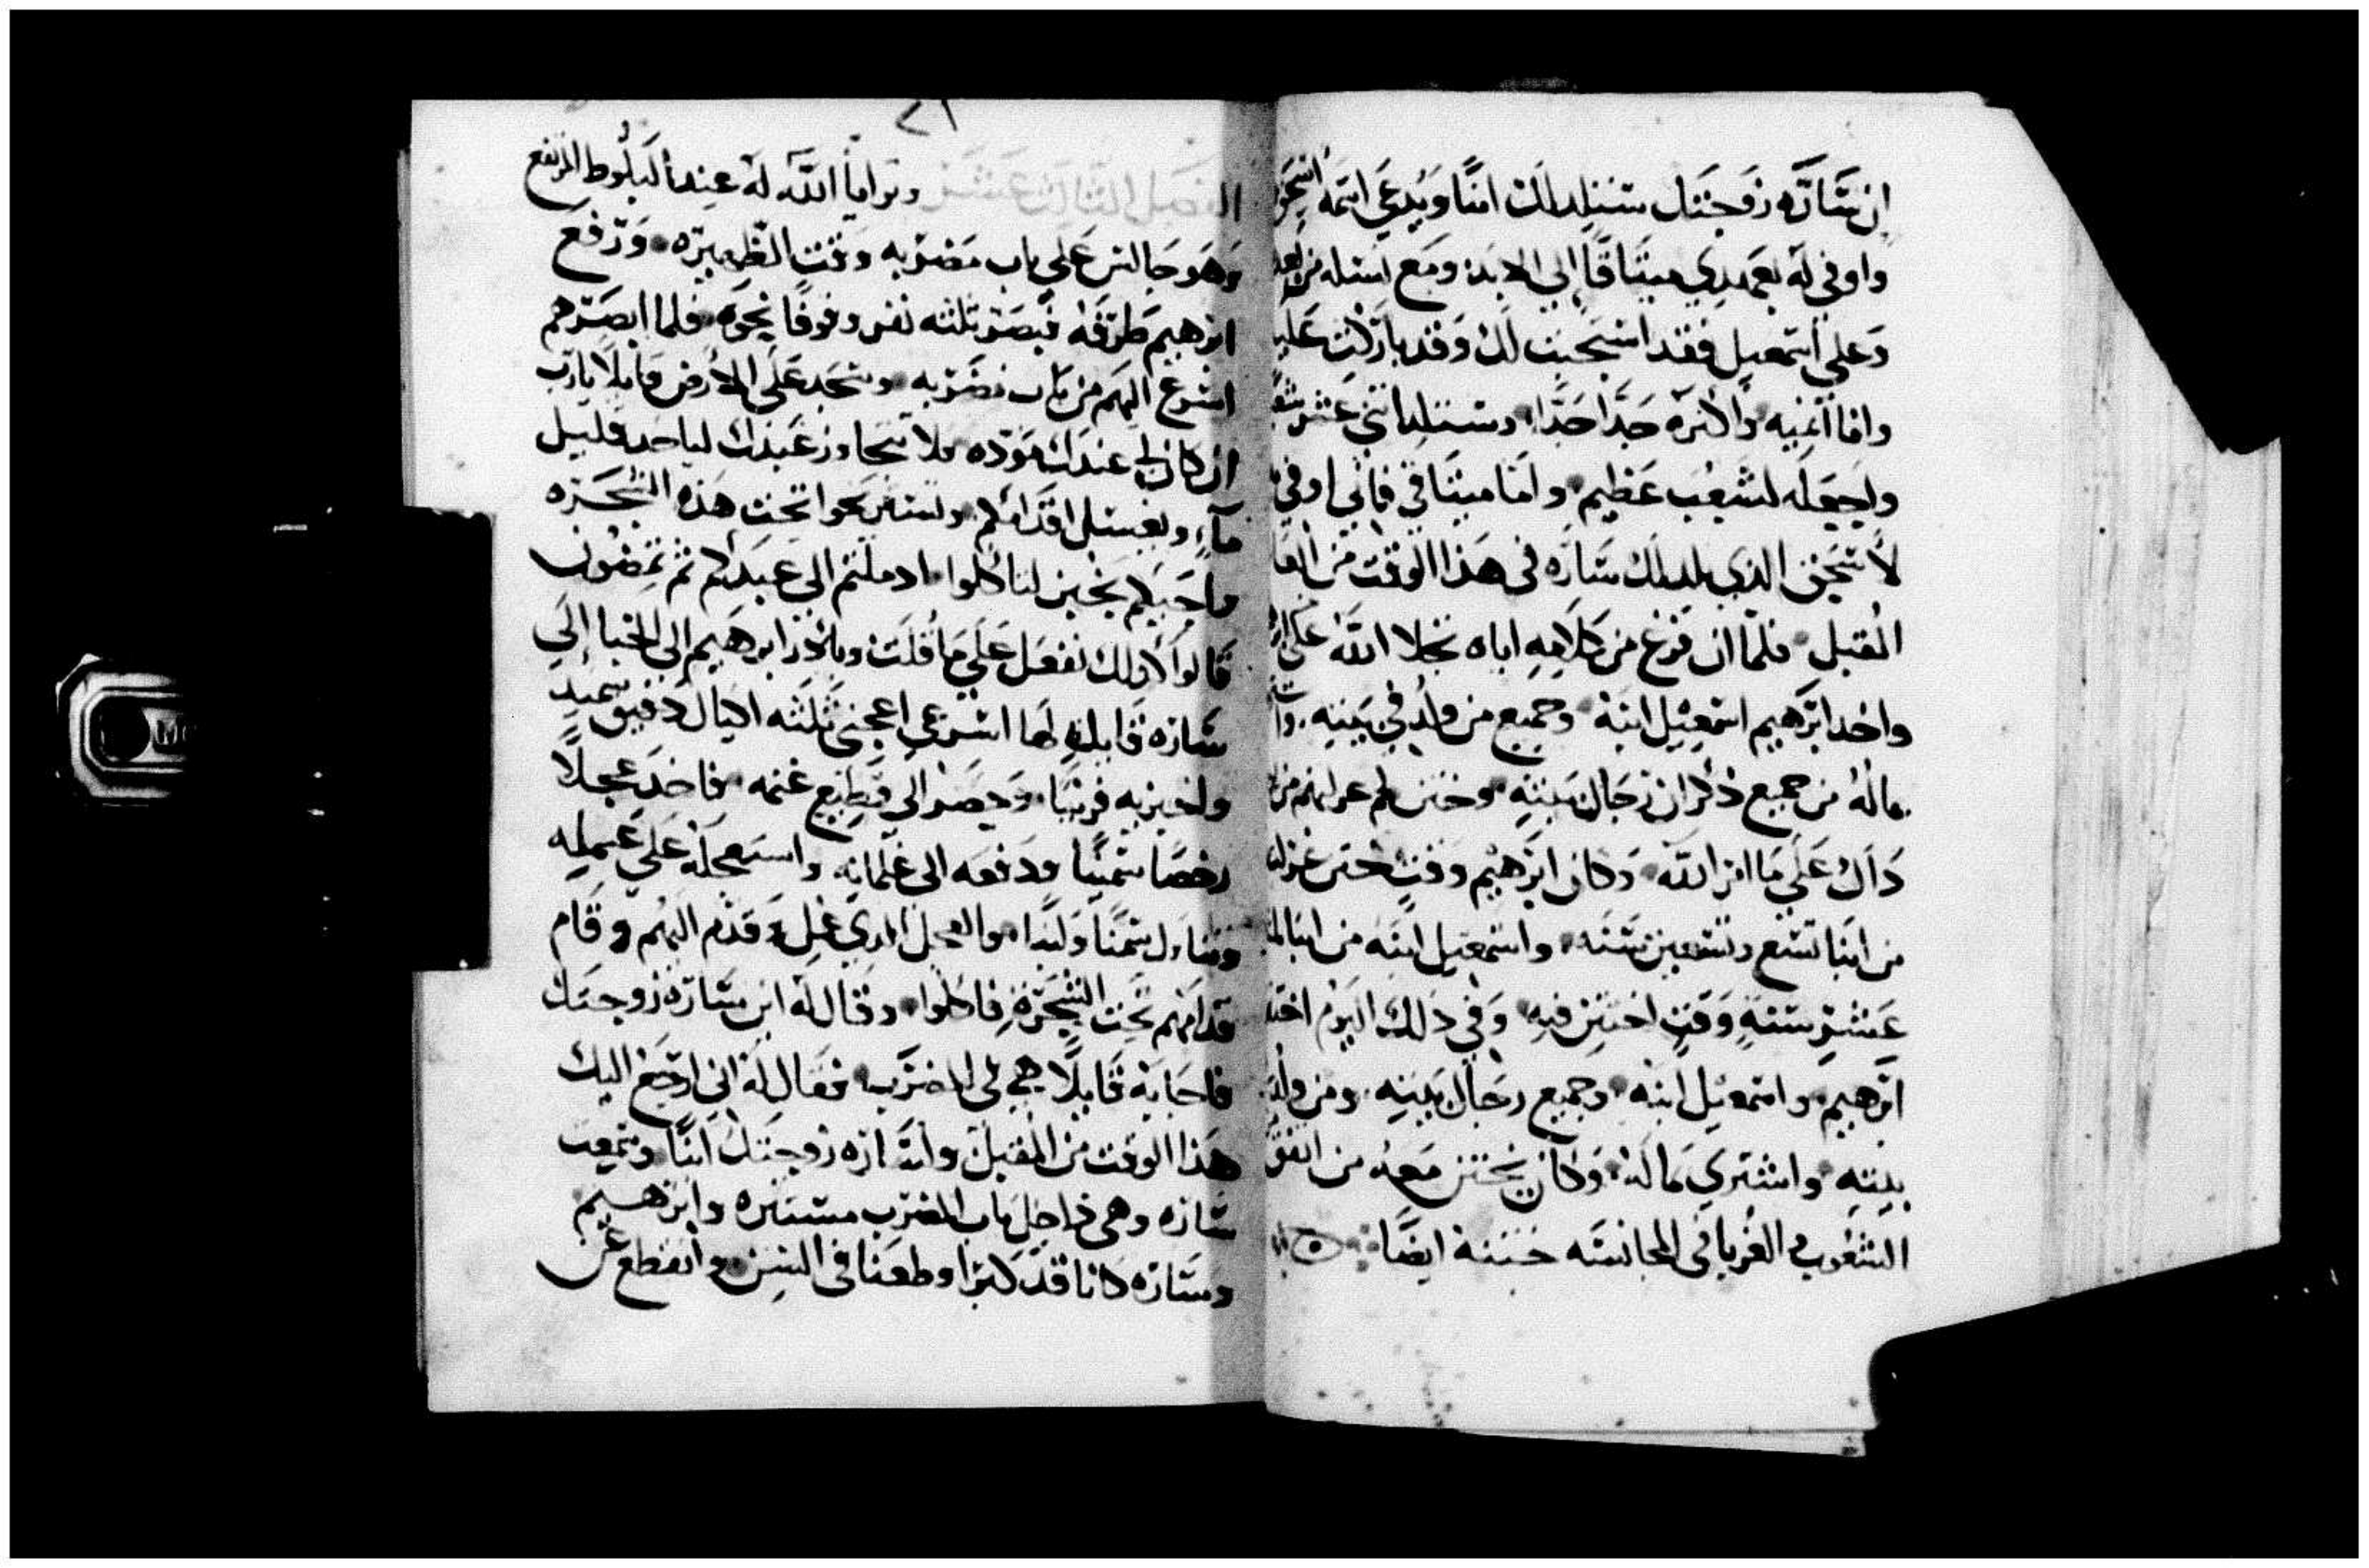 ان سَارَّه زَوجَتك ستلد لك ابنًا ويُدعَي اسمَهُ اسحَق
واوفي لَه بعَهدي ميثاقًا الي الابد ومَع نسله من بعد
وَعلي اسمعيل فقد استجَبت لَك وَقد باركت عَليه
وانا انميه واكثرَه جدًّا جدًّا وستلد اثني عَشر
واجعَله لشعْب عَظيم واما ميثاقي فاني اوفي
لاسحَق الذي تلد لك سَارَه في هَذا الوَقت من العَا
المُقبل فلمّا ان فرَغ من كلامِه اياه تجلا اللّه عَن
واخد ابرَهيم اسمعيل ابنَهُ وجميع من وُلد في بَيته
مالَهُ من جميع ذكران رجَال بيتهِ وختن لحم غرلهم من
داك عَلَي مَا امر اللّه وَكان ابرَهيم وقت ختن غرلته
من ابنا تسَع وتسعين سَنَه واسمعيل ابنَه من ابنا
عَشرِ سنةٍ وَقت اختتن فيهِ وَفي ذلك اليَوم اختتن
ابرَهيم واسمعيل ابنه وجميع رجَال بَيته ومَن وُلد
بيتهِ واشتري مَالَه وَكان يختتن معَه من
الشعُوب الغُربا في المجانسَه ختنه ايضًا
٢١
الفصل الثالث عشر وتراياَ اللّه لَه عند البلُوط المرتفع
وَهوَ جَالس عَلي باب مَضرَبه وَقت الظهيرَه وَرفع
ابرهيم طرَفَه فبَصر ثلثه نفر وقوفًا نحوَه فلما ابصَرهم
اسرَع اليهم من باب مَضرَبه وسَجَد عَلَي الارض قايلاً يارب
ان كان لي عندك موَدّه فلا تتجاوز عَبدك لياخد قليل
مآءٍ ويغسل اقدامكم ولتستريحوا تحت هَذه الشجَرَه
واجيبكم بخبز لتاكلوا اد ملتم الي عَبدكم ثم تمضُون
قَالوا كاولك نفعَل عَلَي مَا قُلت وبادر ابرهيم الي الخبا الَي
سَارَه قايلاً لها اسرَعي اعجني ثلثه اكيال دقيق سَميدٍ
واخبزيه فرنيًا وَحَضر الي قطيع غنمه فاخد عجلاً
رخصًا سَمينًا ودَفعَه الي غلمانه واستعجلَهُ عَلَي عَمله
وتناول سَمنًا وَلبنًا والعجل الدي عمله وَقدم اليهُم وقَام
قدامَهم تحت الشجَرَة فاكلوا وقال لَه اين سَارَه زوجتك
فاجابَهُ قَايلاً هي في المضرَب فقال لَه اني ارجع اليك
هَذا الوقت من المقبل وسَارَه زوجتك ابنًا وسَمعت
سَارَه وهي داخل باب المضرَب مستتره وابرهيم
وسَارَه كانا قد كبرَا وطعنا في السن وانقطع عن